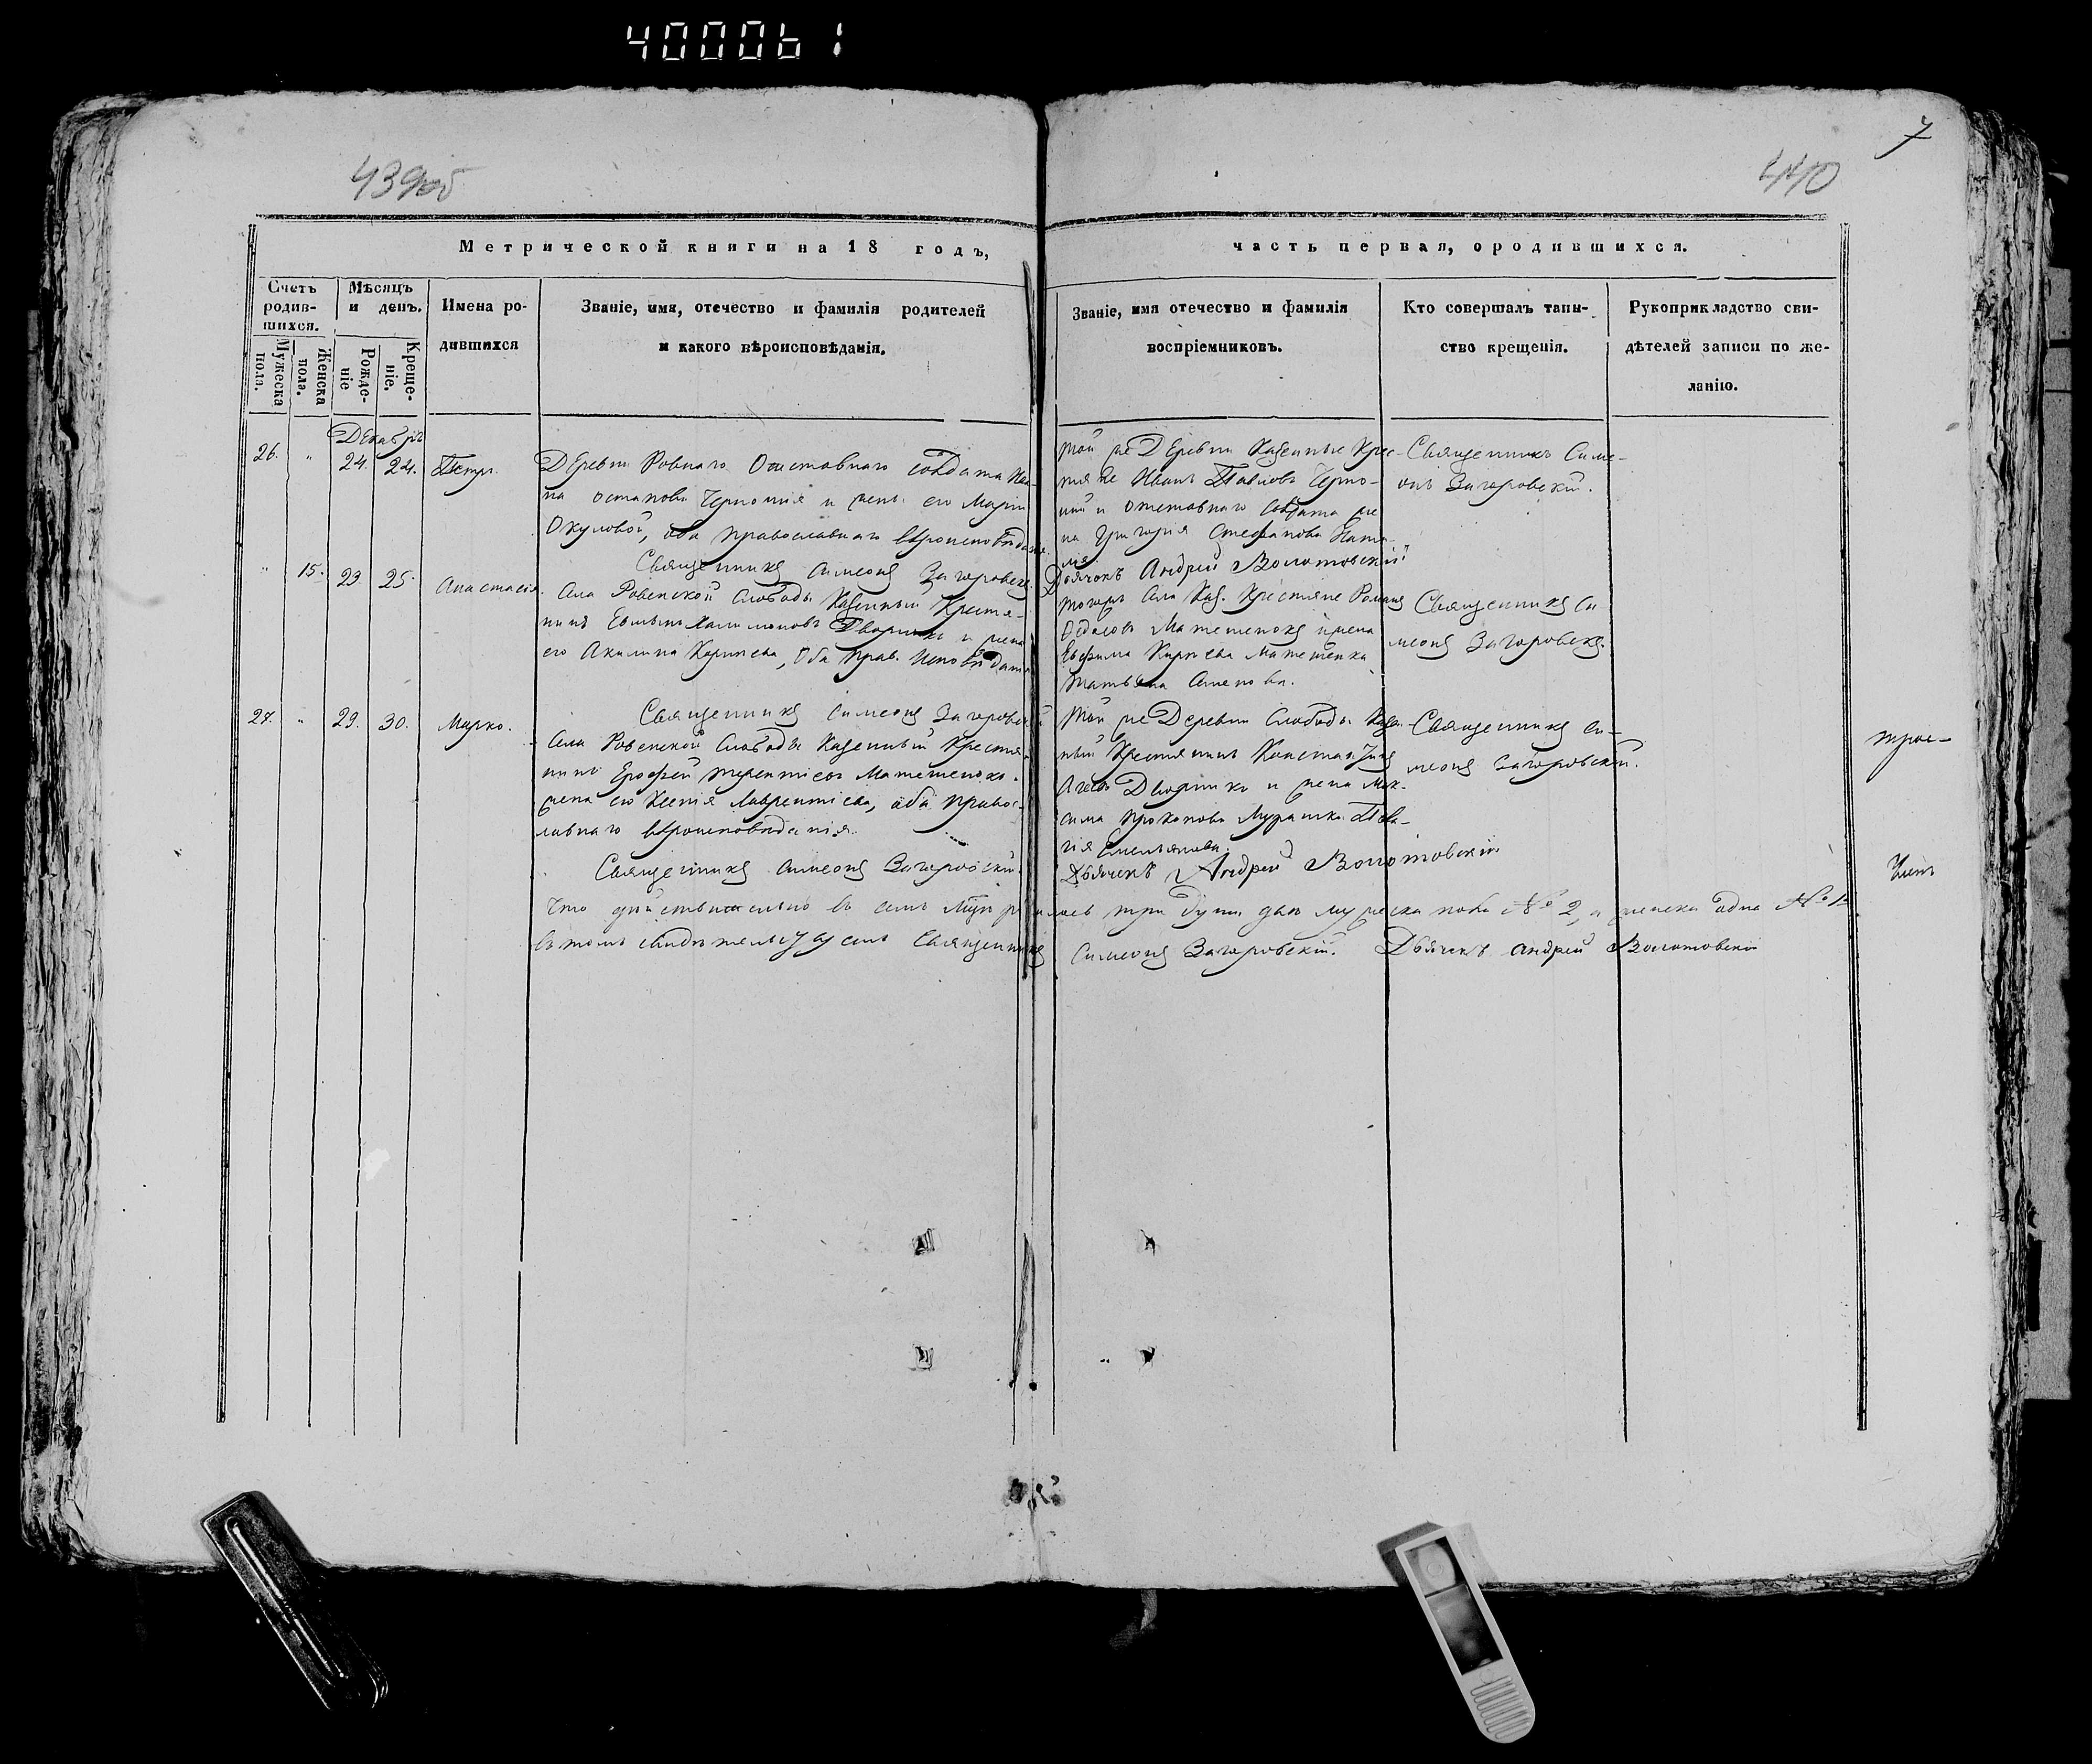 400061
7
439об
440
Метрической книги на 18 годъ,
часть первая, о родившихся.
Счетъ родившихся.
Мѣсяцъ и день.
Имена родившихся
Званіе, имя, отечество и фамилія родителей
и какого вѣроисповѣданія.
Званіе, имя отечество и фамилія
воспріемниковъ.
Кто совершалъ таин-
ство крещенія.
Рукоприкладство сви-
дѣтелей записи по же-
ланію.
Мужеска пола.
Женска пола.
Рожденіе
Крещеніе.
Декабрь
26. " 24. 24. Петръ.
Деревни Ровнаго Отставнаго солдата Ива-
на и жены его Маріи
Окуловой, оба православнаго вѣроисповѣданія.
Священникъ Симеонъ Загоровскій
той же Деревни Казенные Крес-
тяне Иванъ Павловъ
и отставнаго солдата же-
на Григорія Стефанова
Дьячекъ Андрей Волотовскій
Священникъ Симе-
онъ Загоровскій.
" 15. 23. 25. Анастасія
Села Ровенской Слободы Казенный Крестя-
нинъ Дворникъ и жена
его Акилина Карпѣева, Оба прав. исповѣданія
тогожъ Села Каз. Крестяне Романъ
Матетенокъ и жена
Евфима Карпѣева Матетенка
Татьяна
Священникъ Си-
меонъ Загоровскій.
27. " 29. 30. Марко.
Священникъ Симеонъ Загоровскій
Села Ровенской Слободы Казенный Крестя-
нинъ Ерофей Терентіевъ Матетенокъ
жена его Ксенія Лаврентіева, оба правос-
лавнаго вѣроисповѣданія.
Священникъ Симеонъ Загоровскій.
Той же Деревни Слободы Казен-
ный Крестянинъ Константинъ
и жена Мак-
сима Прокопова Мурашка Пела-
гія Емельянова.
Дьячекъ Андрей Волотовскій
Священникъ Си-
меонъ Загоровскій.
трое-
Что дѣйствительно въ семъ мцѣ родилось три души двѣ мужеска пола № 2, а женска одна № 1
въ томъ свидѣтельствуемъ Священникъ Симеонъ Загоровскій. Дьячекъ Андрей Волотовскій